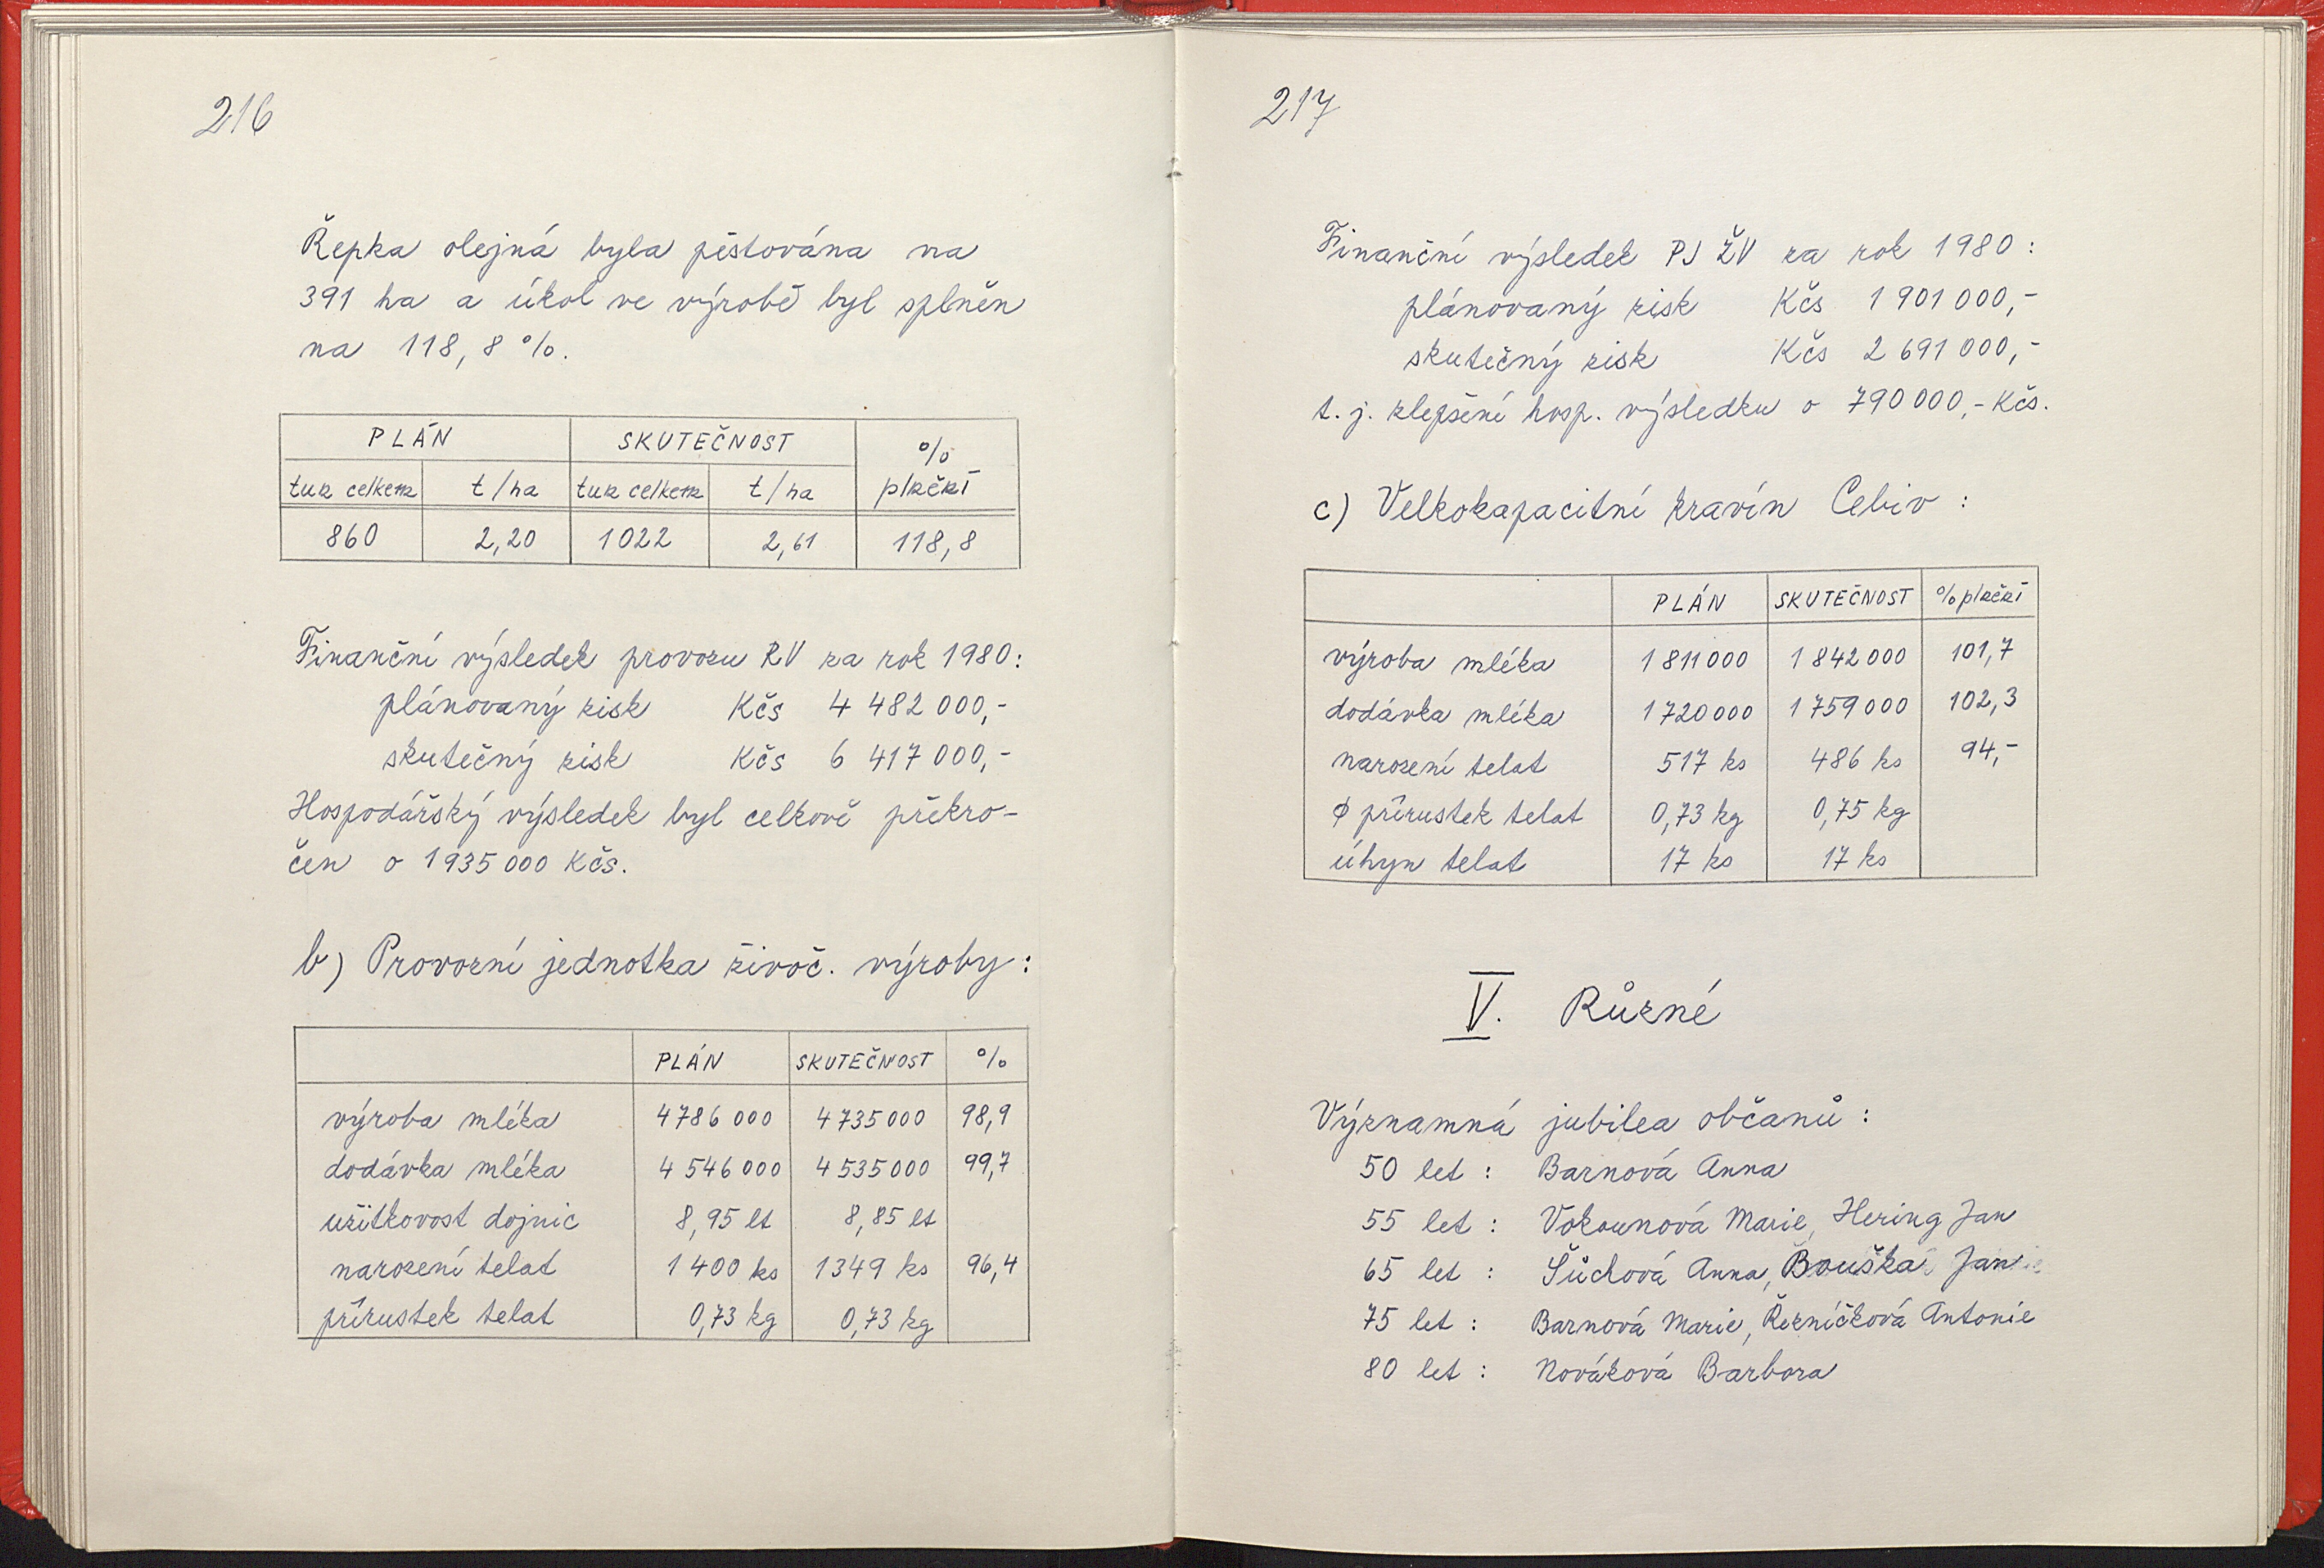 216
Řepka olejná byla pěstována na
391 ha a úkol ve výrobě byl splněn
na 118,8 %.
PLÁN SKUTEČNOST %
tun celkem t/ha tun celkem t/ha plnění
860 2,20 1022 2,61 118,8
Finanční výsledek provozu RV za rok 1980:
plánovaný zisk Kčs 4 482 000,-
skutečný zisk Kčs 6 417 000,-
Hospodářský výsledek byl celkově překro-
čen o 1 935 000 Kčs.
b) Provozní jednotka živoč. výroby:
PLÁN SKUTEČNOST %
výroba mléka 4 786 000 4 735 000 98,9
dodávka mléka 4 546 000 4 535 000 99,7
užitkovost dojnic 8,95 lt 8,85 lt
narození telat 1 400 ks 1349 ks 96,4
přírustek telat 0,73 kg 0,73 kg
217
Finanční výsledek PJ ŽV za rok 1980:
plánovaný zisk Kčs 1 901 000,-
skutečný zisk Kčs 2 691 000,-
t. j. zlepšení hosp. výsledku o 790 000,- Kčs.
c) Velkokapacitní kravín Cebiv:
PLÁN SKUTEČNOST % plnění
výroba mléka 1 811 000 1 842 000 101,7
dodávka mléka 1 720 000 1 759 000 102,3
narození telat 517 ks 486 ks 94,-
ϕ přírustek telat 0,73 kg 0,75 kg
úhyn telat 17 ks 17 ks
V. Různé
Významná jubilea občanů:
50 let: Barnová Anna
55 let: Vokounová Marie, Hering Jan
65 let: Šůchová Anna, Bouška Jan
75 let: Barnová Marie, Řezníčková Antonie
80 let: Nováková Barbora